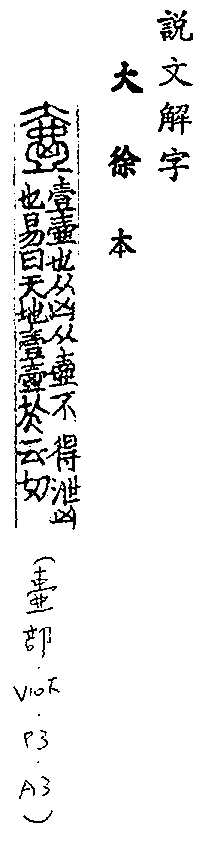 說文解字
大徐本
𡔲 壹𡔲也从凶从壺不得泄凶
也易曰天地壹𡔲於云切
(壺部.V10下.P3.A3)